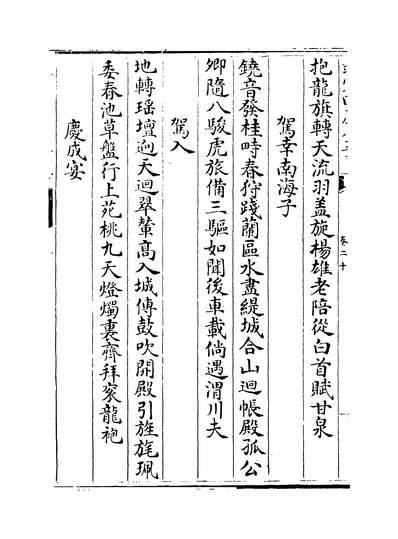 抱龍旗轉天流羽盖旋楊雄老陪從白首賦甘泉
駕幸南海子
鐃音發桂畤春狩踐蘭區水盡緹城合山迴帳殿孤公
卿隨八駿虎旅備三驅如聞後車載倘遇渭川夫
駕入
地轉瑶壇逈天迴翠輦髙入城傳鼓吹開殿引旌旄珮
委春池草盤行上苑桃九天燈燭裏齊拜衮龍袍
慶成宴
卷二十